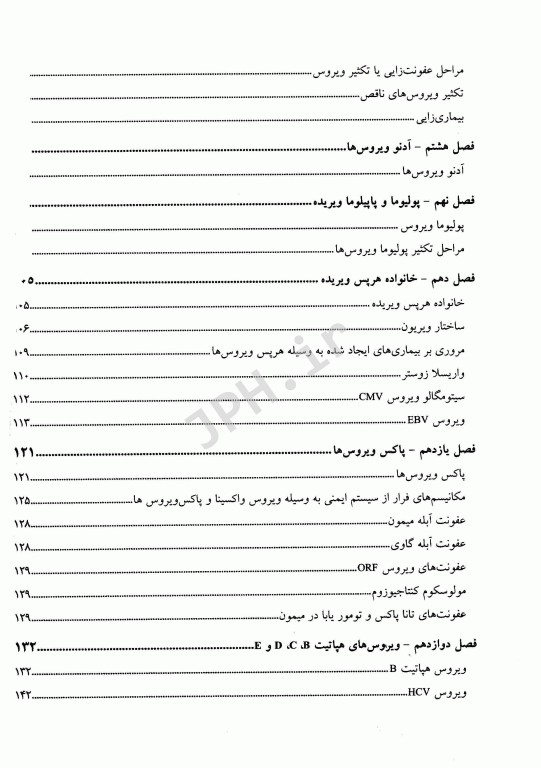 مراحل عفونت‌زایی یا تکثیر ویروس
تکثیر ویروس‌های ناقص
بیماری‌زایی
فصل هشتم – آدنو ویروس‌ها
آدنو ویروس‌ها
فصل نهم – پولیوما و پاپیلوما ویریده
پولیوما ویروس
مراحل تکثیر پولیوما ویروس‌ها
فصل دهم – خانواده هرپس ویریده ۰۵
خانواده هرپس ویریده ۰۵
ساختار ویریون ۰۶
مروری بر بیماری‌های ایجاد شده به وسیله هرپس ویروس‌ها ۱۰۹
واریسلا زوستر ۱۱۰
سیتومگالو ویروس CMV ۱۱۲
ویروس EBV ۱۱۳
فصل یازدهم – پاکس ویروس‌ها ۱۲۱
پاکس ویروس‌ها ۱۲۱
مکانیسم‌های فرار از سیستم ایمنی به وسیله ویروس واکسینا و پاکس‌ویروس ها ۱۲۵
عفونت آبله میمون ۱۲۸
عفونت آبله گاوی ۱۲۸
عفونت‌های ویروس ORF ۱۲۹
مولوسکوم کنتاجیوزوم ۱۲۹
عفونت‌های تانا پاکس و تومور یابا در میمون ۱۲۹
فصل دوازدهم – ویروس‌های هپاتیت B، C، D و E ۱۳۲
ویروس هپاتیت B ۱۳۲
ویروس HCV ۱۴۲
JPH.ir